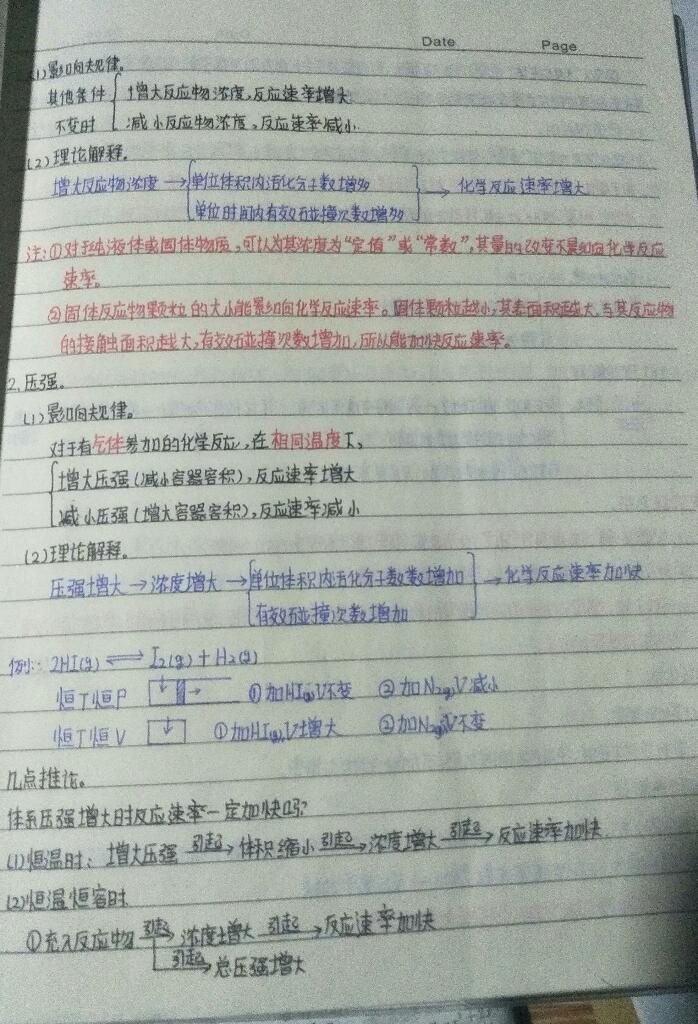 Date Page
(1)影响规律。
其他条件 增大反应物浓度,反应速率增大
不变时 减小反应物浓度,反应速率减小.
(2)理论解释.
增大反应物浓度→单位体积内活化分子数增多
单位时间内有效碰撞次数增多
→化学反应速率增大
注:①对于纯液体或固体物质,可认为其浓度为“定值”或“常数”,其量的改变不影响化学反应
速率。
②固体反应物颗粒的大小能影响化学反应速率。固体颗粒越小,其表面积越大,与其反应物
的接触面积越大,有效碰撞次数增加,所以能加快反应速率。
2.压强。
(1)影响规律。
对于有气体参加的化学反应,在相同温度下,
增大压强(减小容器容积),反应速率增大
减小压强(增大容器容积),反应速率减小
(2)理论解释。
压强增大→浓度增大→单位体积内活化分子数数增加
有效碰撞次数增加
→化学反应速率加快
例:2HI(g)⇌I₂(g)+H₂(g)
恒T恒P ①加HI(g)V不变 ②加N₂(g)V减小
恒T恒V ①加HI(g),V增大 ②加N₂(g)V不变
几点推论。
体系压强增大时反应速率一定加快吗?
(1)恒温时:增大压强 引起→体积缩小 引起→浓度增大 引起→反应速率加快
(2)恒温恒容时
①充入反应物 引起→浓度增大 引起→反应速率加快
引起→总压强增大